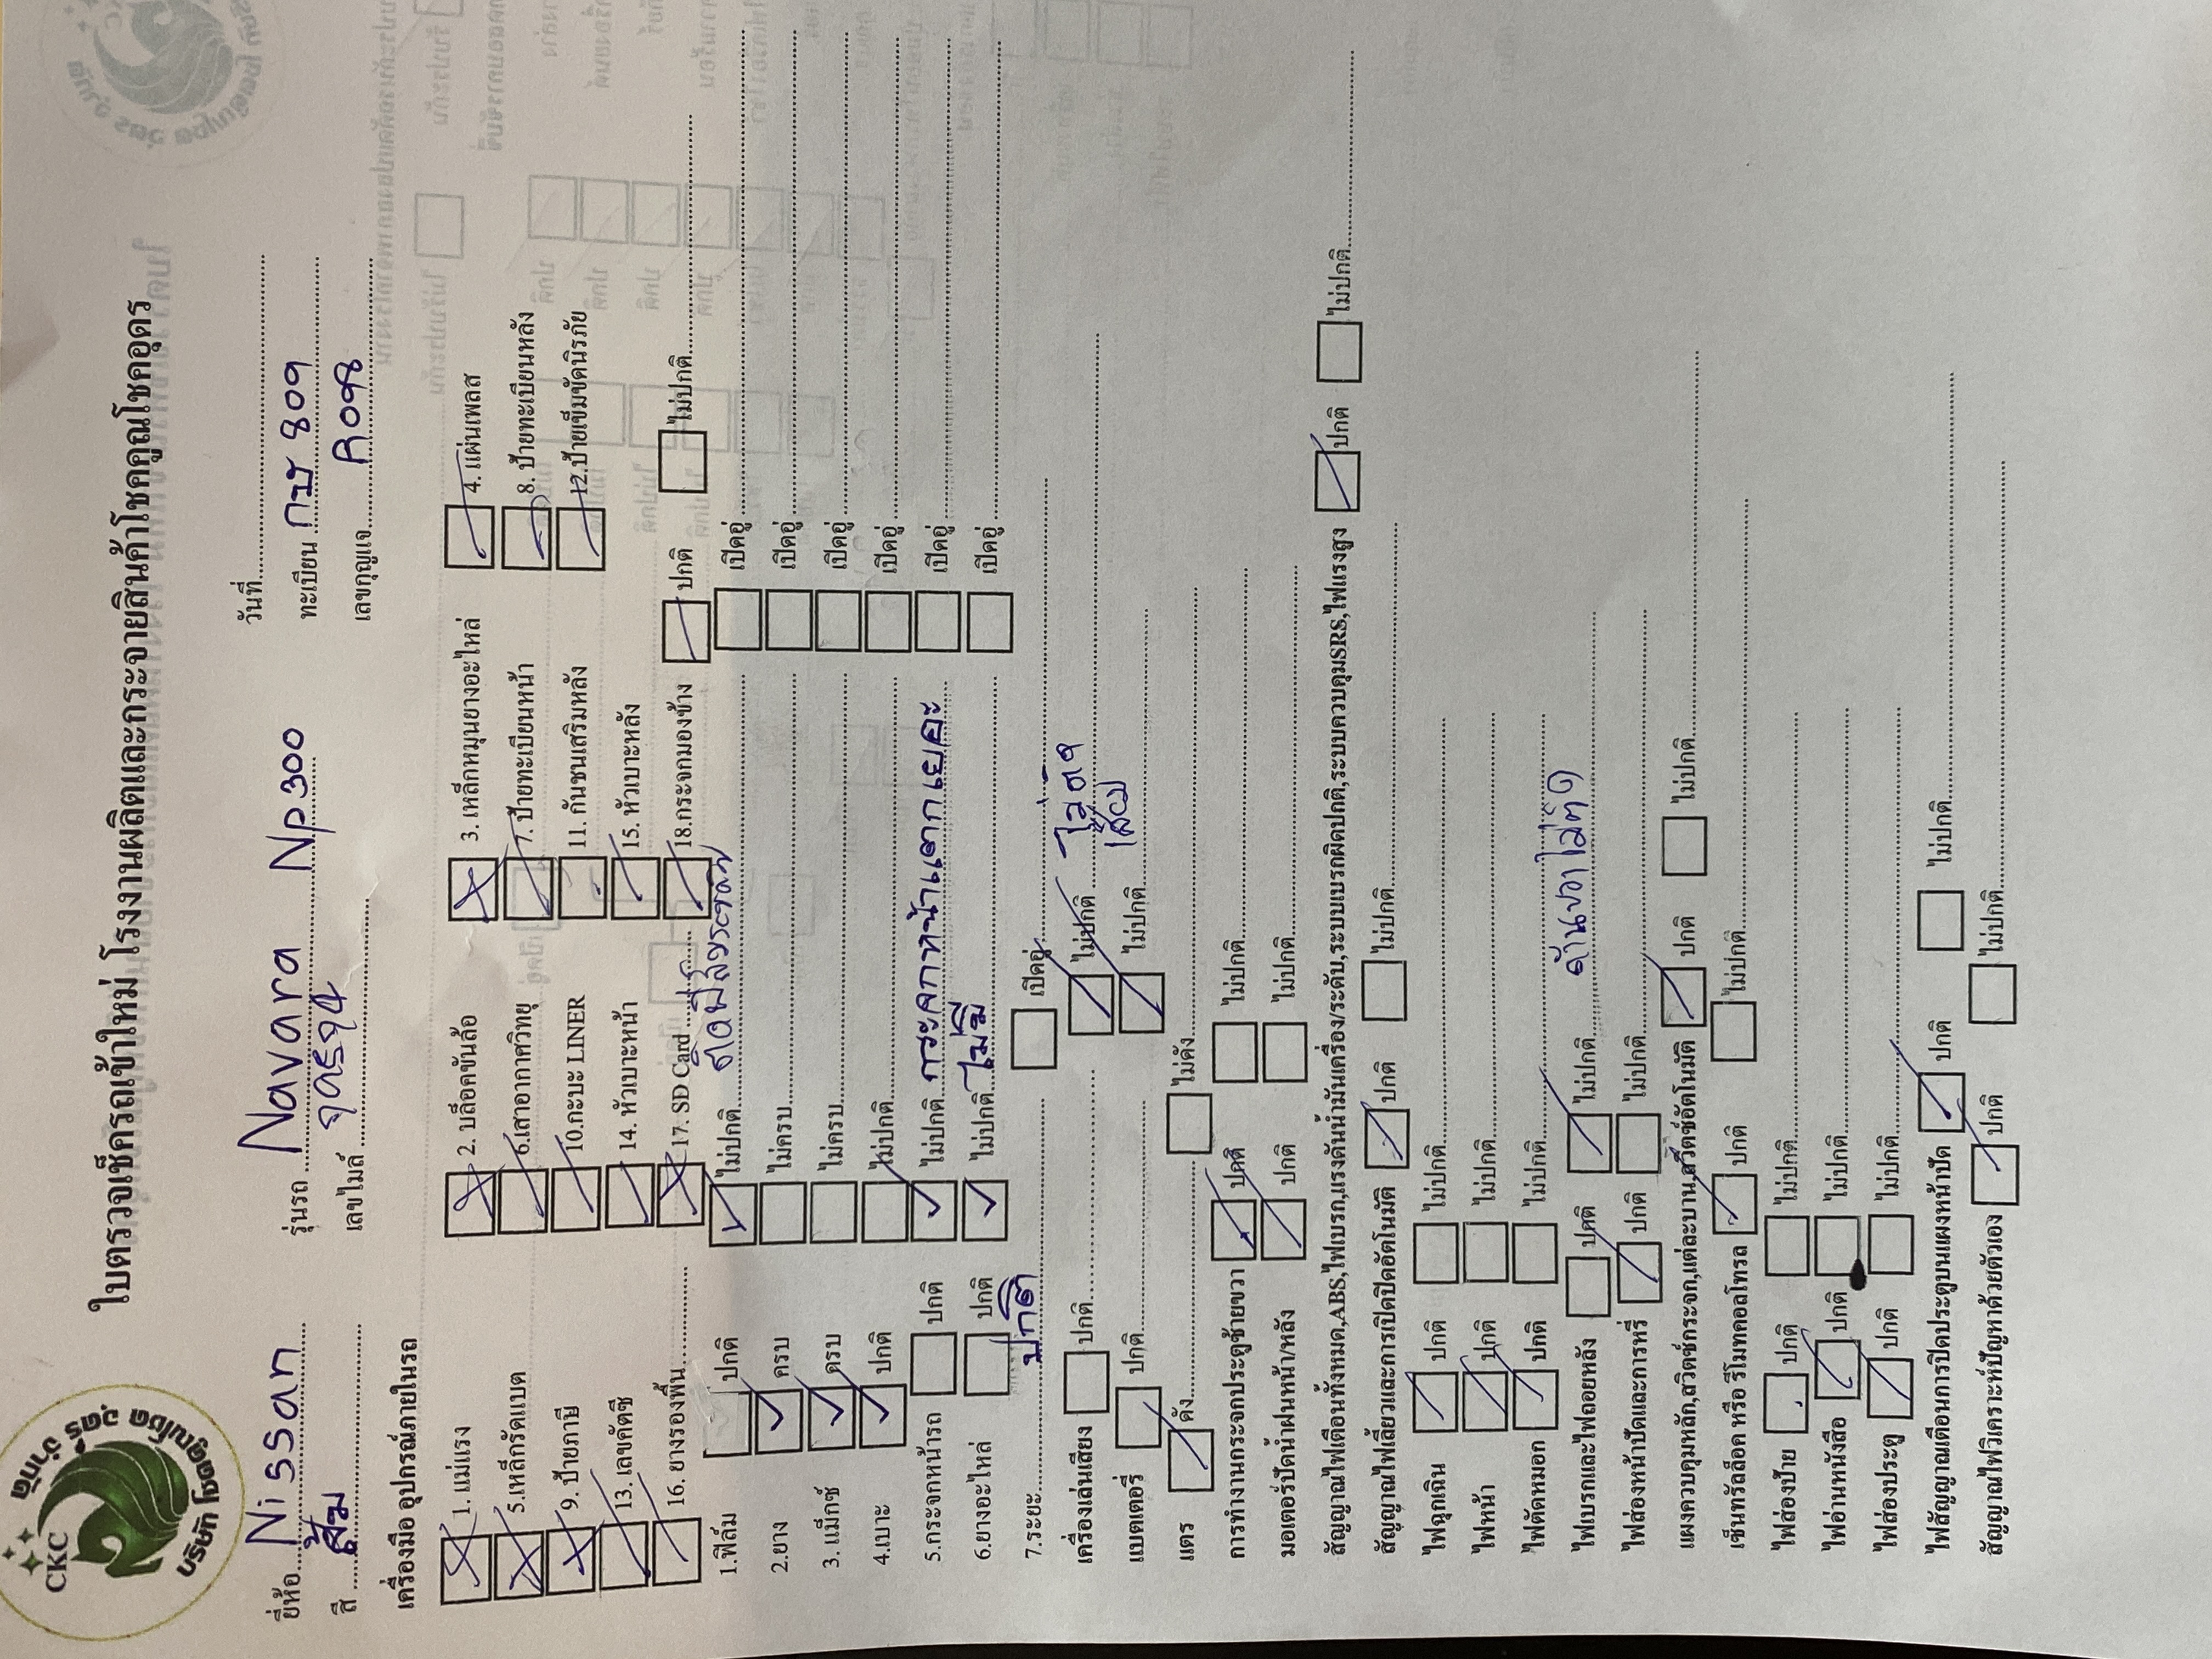 CKC
บริษัท โชคคูณโชค อุดร จำกัด
ใบตรวจเช็ครถเข้าใหม่ โรงงานผลิตและกระจายสินค้าโชคคูณโชคอุดร
วันที่
ยี่ห้อ Nissan รุ่นรถ Navara Np300 ทะเบียน กบ 809
สี ส้ม เลขไมล์ เลขกุญแจ R098
เครื่องมือ อุปกรณ์ภายในรถ
1. แม่แรง 2. บล็อคขันล้อ 3. เหล็กหมุนยางอะไหล่ 4. แผ่นเพลส
5.เหล็กรัดแบต 6.เสาอากาศวิทยุ 7. ป้ายทะเบียนหน้า 8. ป้ายทะเบียนหลัง
9. ป้ายภาษี 10.กะบะ LINER 11. กันชนเสริมหลัง 12.ป้ายเข็มขัดนิรภัย
13. เลขคัตซี 14. หัวเบาะหน้า 15. หัวเบาะหลัง
16. ยางรองพื้น 17. SD Card 18.กระจกมองข้าง ปกติ ไม่ปกติ
1.ฟิล์ม ปกติ ไม่ปกติ เปิดอยู่
2.ยาง ครบ ไม่ครบ เปิดอยู่
3. แม็กซ์ ครบ ไม่ครบ เปิดอยู่
4.เบาะ ปกติ ไม่ปกติ เปิดอยู่
5.กระจกหน้ารถ ปกติ ไม่ปกติ กระจกหน้าแตกเยอะ เปิดอยู่
6.ยางอะไหล่ ปกติ ไม่ปกติ ไม่มี เปิดอยู่
7.ระยะ ปกติ เปิดอยู่
เครื่องเล่นเสียง ปกติ ไม่ปกติ
แบตเตอรี่ ปกติ ไม่ปกติ เสื่อม
แตร ดัง ไม่ดัง
การทำงานกระจกประตูซ้ายขวา ปกติ ไม่ปกติ
มอเตอร์ปัดน้ำฝนหน้า/หลัง ปกติ ไม่ปกติ
สัญญาณไฟเตือนทั้งหมด,ABS,ไฟเบรก,แรงดันน้ำมันเครื่อง/ระดับ,ระบบเบรกผิดปกติ,ระบบควบคุมSRS,ไฟแรงสูง ปกติ ไม่ปกติ
สัญญาณไฟเลี้ยวและการเปิดปิดอัตโนมัติ ปกติ ไม่ปกติ
ไฟฉุกเฉิน ปกติ ไม่ปกติ
ไฟหน้า ปกติ ไม่ปกติ
ไฟตัดหมอก ปกติ ไม่ปกติ
ไฟเบรกและไฟถอยหลัง ปกติ ไม่ปกติ ด้านขวาไม่ติด
ไฟส่องหน้าปัดและการหรี่ ปกติ ไม่ปกติ
แผงควบคุมหลัก,สวิตซ์กระจก,แต่ละบาน,สวิตซ์อัตโนมัติ ปกติ ไม่ปกติ
เซ็นทรัลล็อค หรือ รีโมทคอลโทรล ปกติ ไม่ปกติ
ไฟส่องป้าย ปกติ ไม่ปกติ
ไฟอ่านหนังสือ ปกติ ไม่ปกติ
ไฟส่องประตู ปกติ ไม่ปกติ
ไฟสัญญาณเตือนการปิดประตูบนแผงหน้าปัด ปกติ ไม่ปกติ
สัญญาณไฟวิเคราะห์ปัญหาด้วยตัวเอง ปกติ ไม่ปกติ